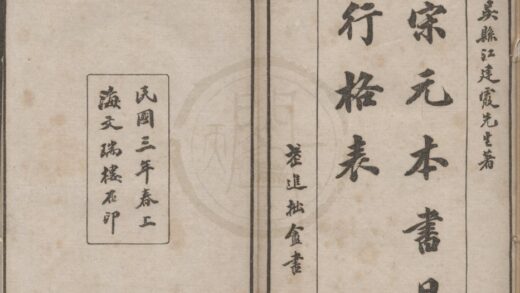 吳縣江建霞先生著
宋元本書目
行格表
進拙盦書
民國三年春上
海文瑞樓石印